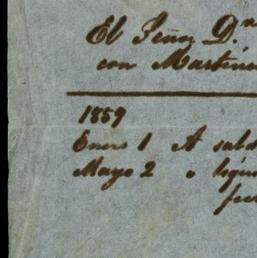 El Señor Dn
con Martine
1859
Enero 1 A sald
Mayo 2 " liqui